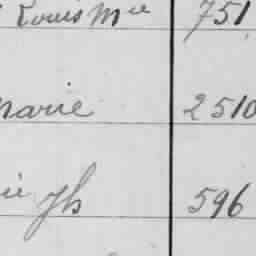 Louis Mie 751
Marie 2510
Jh 596